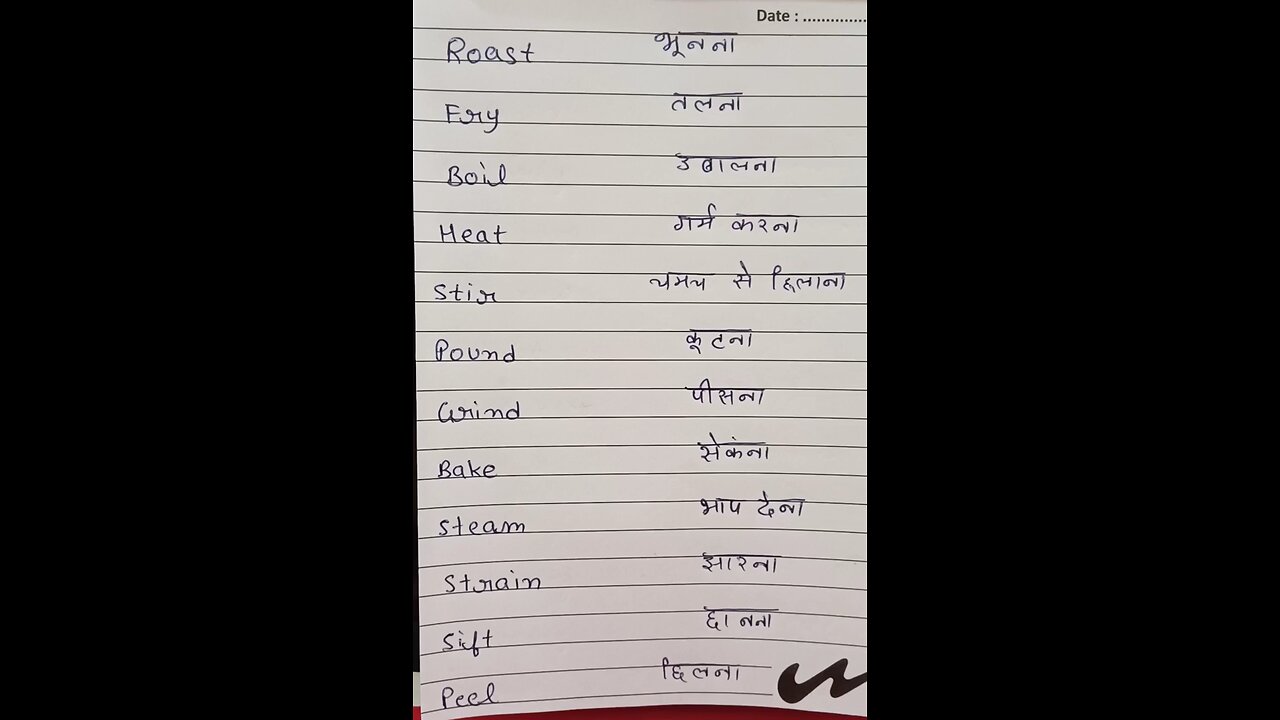 Date : ..............
Roast भूनना
Fry तलना
Boil उबालना
Heat गर्म करना
Stir चमच से हिलाना
Pound कूटना
Grind पीसना
Bake सेकंना
Steam भाप देना
Strain झारना
Sift छानना
Peel छिलना